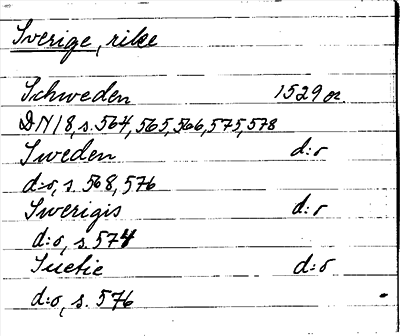 Sverige, rike
Schweden 1529 or.
DN 18, s. 564, 565, 566, 575, 578
Sweden d:o
d:o, s. 568, 576
Swerigis d:o
d:o, s. 574
Suetie d:o
d:o, s. 576